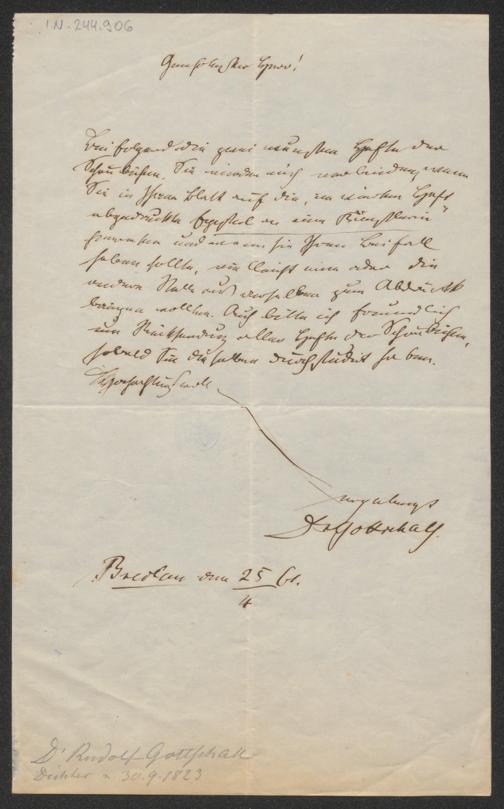 I.N. 244.906
Geehrtester Herr!
Beifolgend die zwei neuesten Hefte der
Schaubühne. Sie würden mich verbinden, wenn
Sie in Ihrem Blatt auf die, im Hefte
abgedruckte Epistel an eine Künstlerin"
hinwiesen und wenn sie Ihren Beifall
haben sollte, vielleicht eine oder die
andere Stelle aus derselben zum Abdruck
bringen wollten. Auch bitte ich freundlich
um Rücksendung aller Hefte der Schaubühne,
sobald Sie dieselben durchstudirt haben.
Hochachtungsvoll
ergebenst
Dr Gottschall.
Breslau den 25/4 61.
Dr Rudolf Gottschall
Dichter 30.9.1823